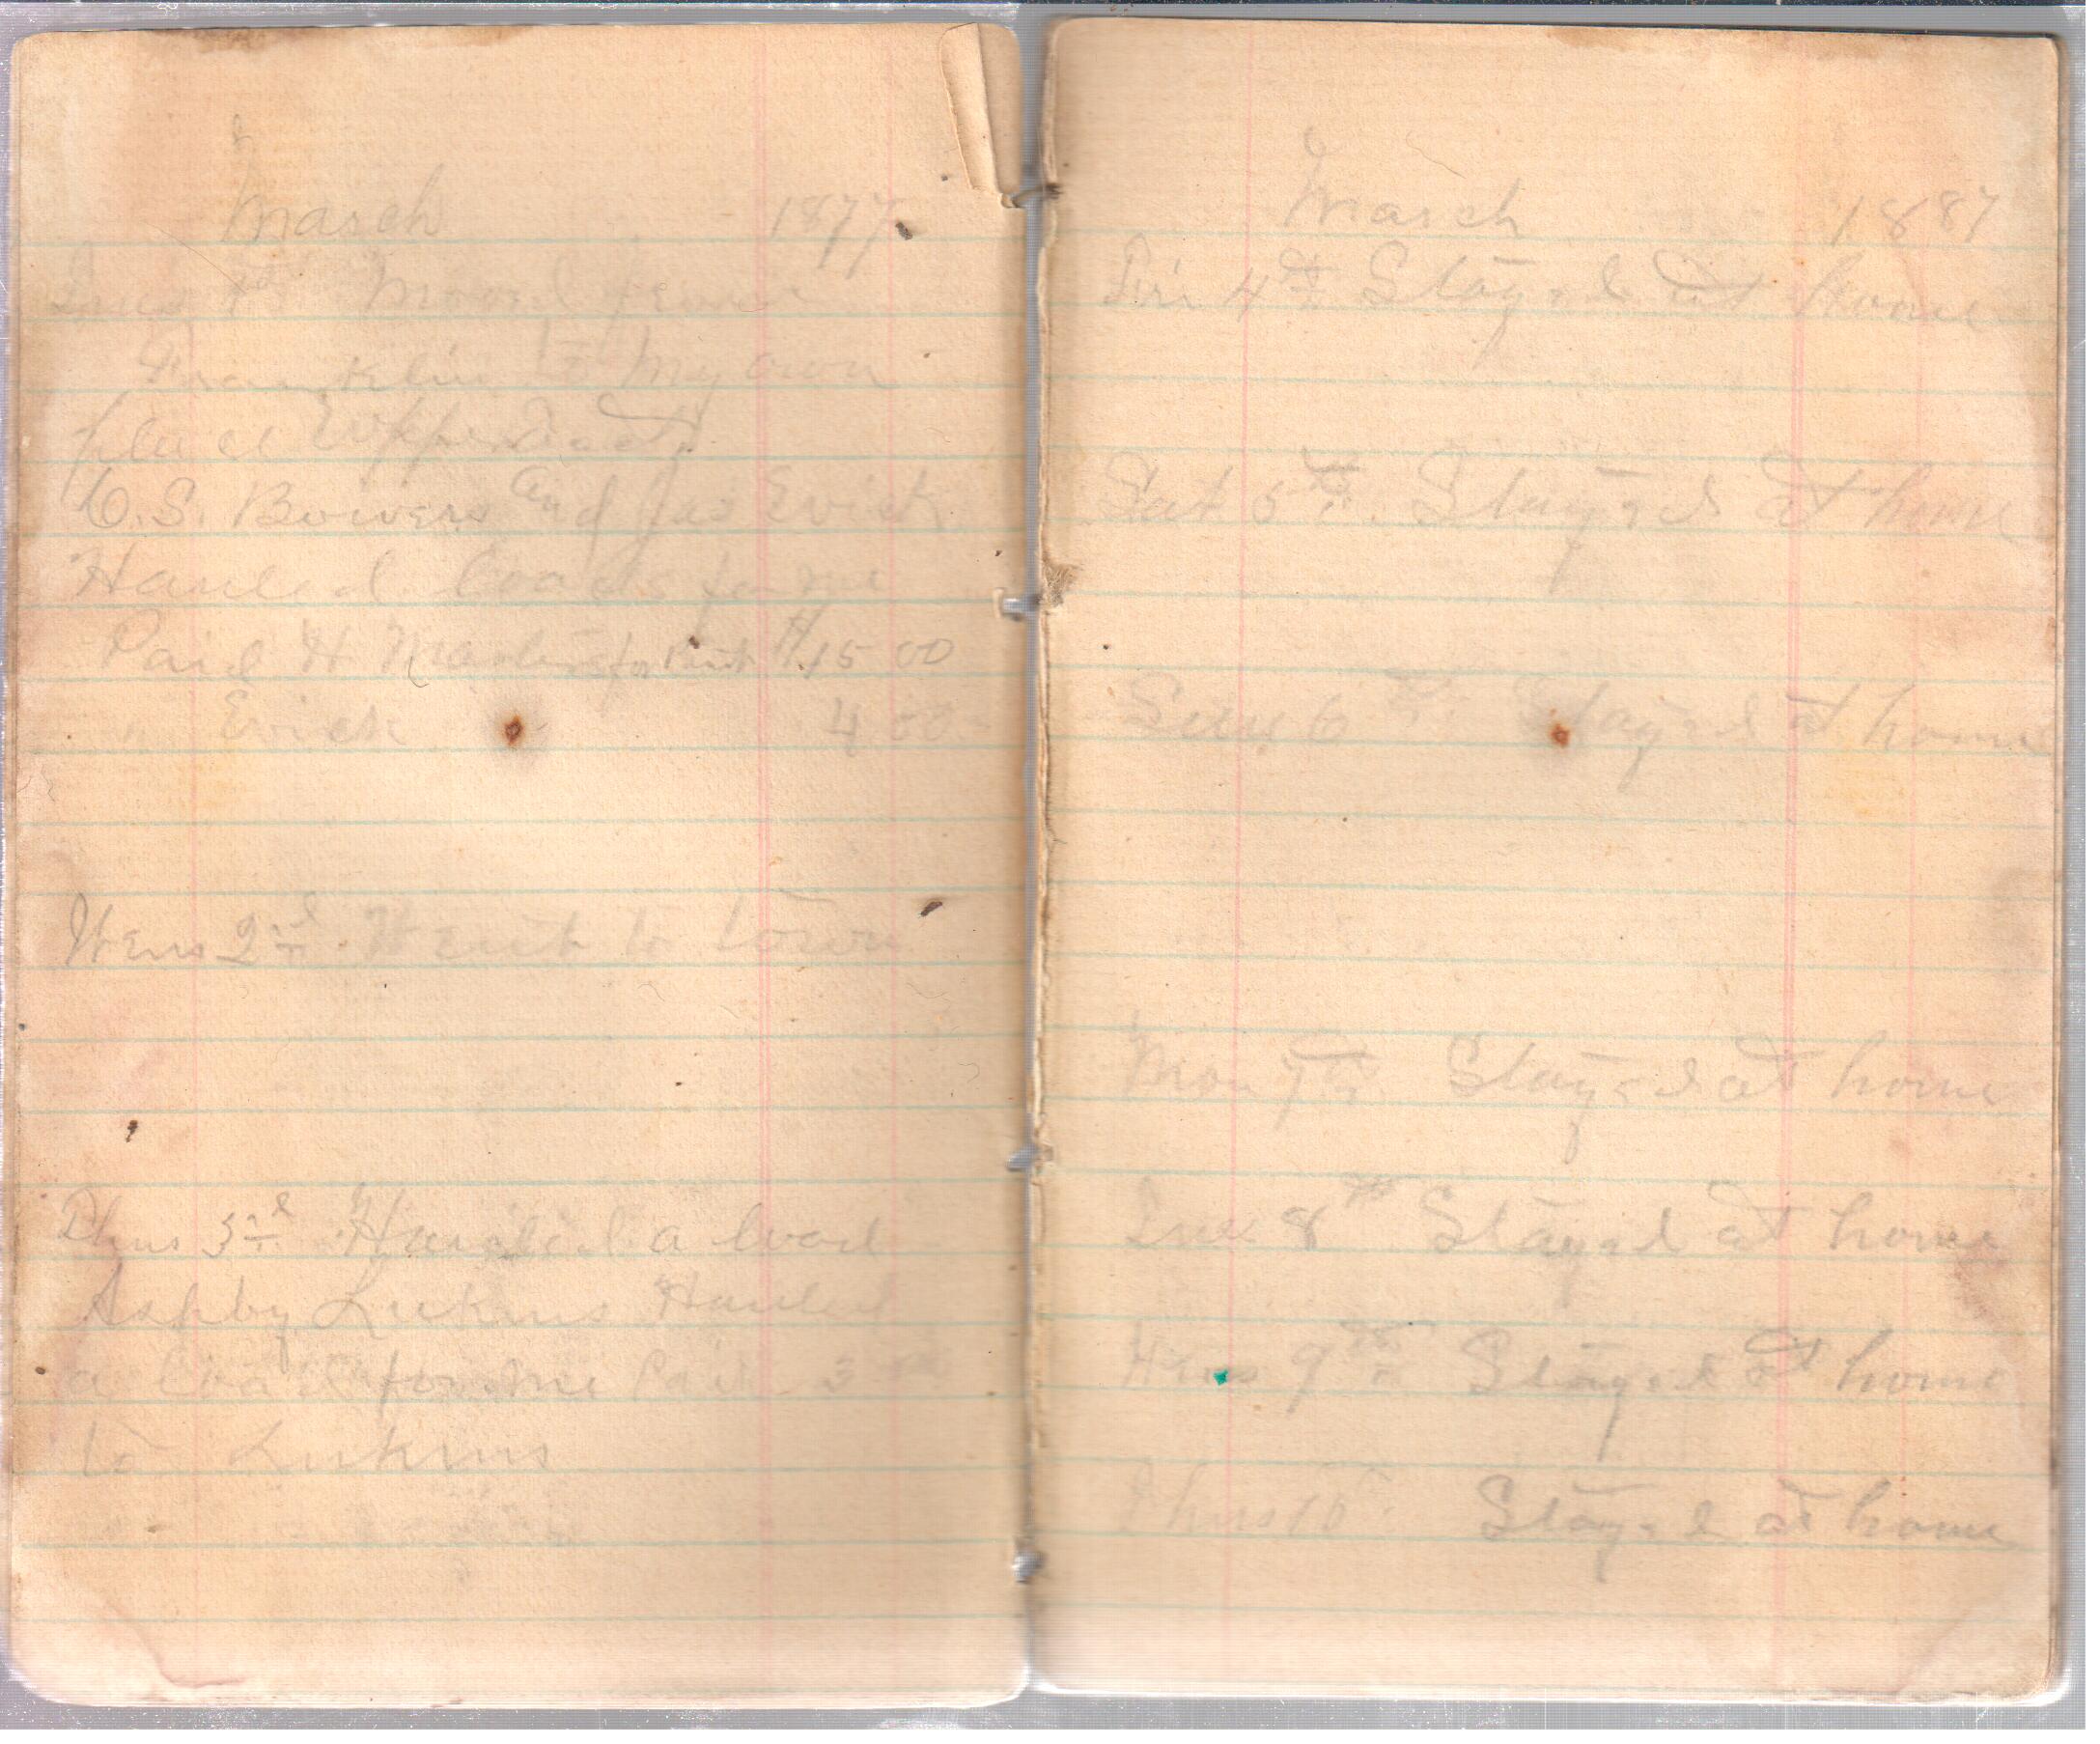 March 1877
Tues 1st Moved from
Franklin to my own
place
C. S. Bowers and Jas Evick
Hauled loads for me
Paid H Masters for Rent 15 00
" Evick 4 00
Wens 2nd Went to town
Thus 3rd Hauled a load
Ashby Lukens Hauled
a load for me Paid 3
to Lukens
March 1887
Fri 4th Stayed at home
Sat 5th Stayed at home
Sun 6th Stayed at home
Mon 7th Stayed at home
Tues 8th Stayed at home
Wens 9th Stayed at home
Thus 10th Stayed at home